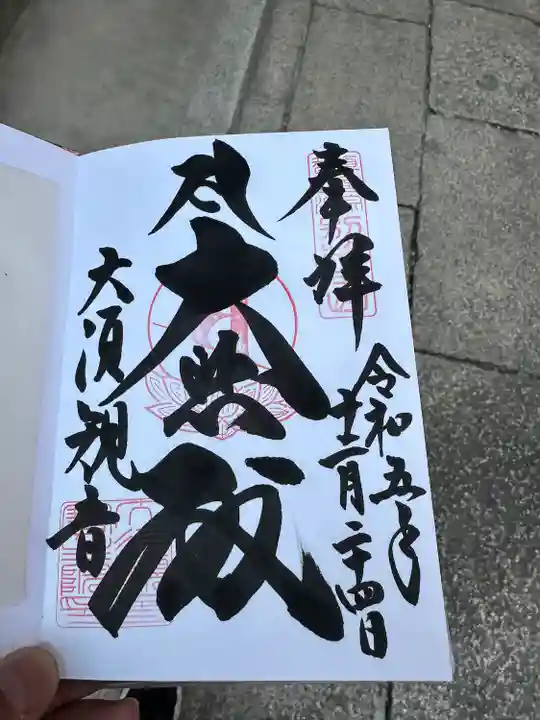 奉拝
令和五年
十二月二十四日
大悲殿
大須観音